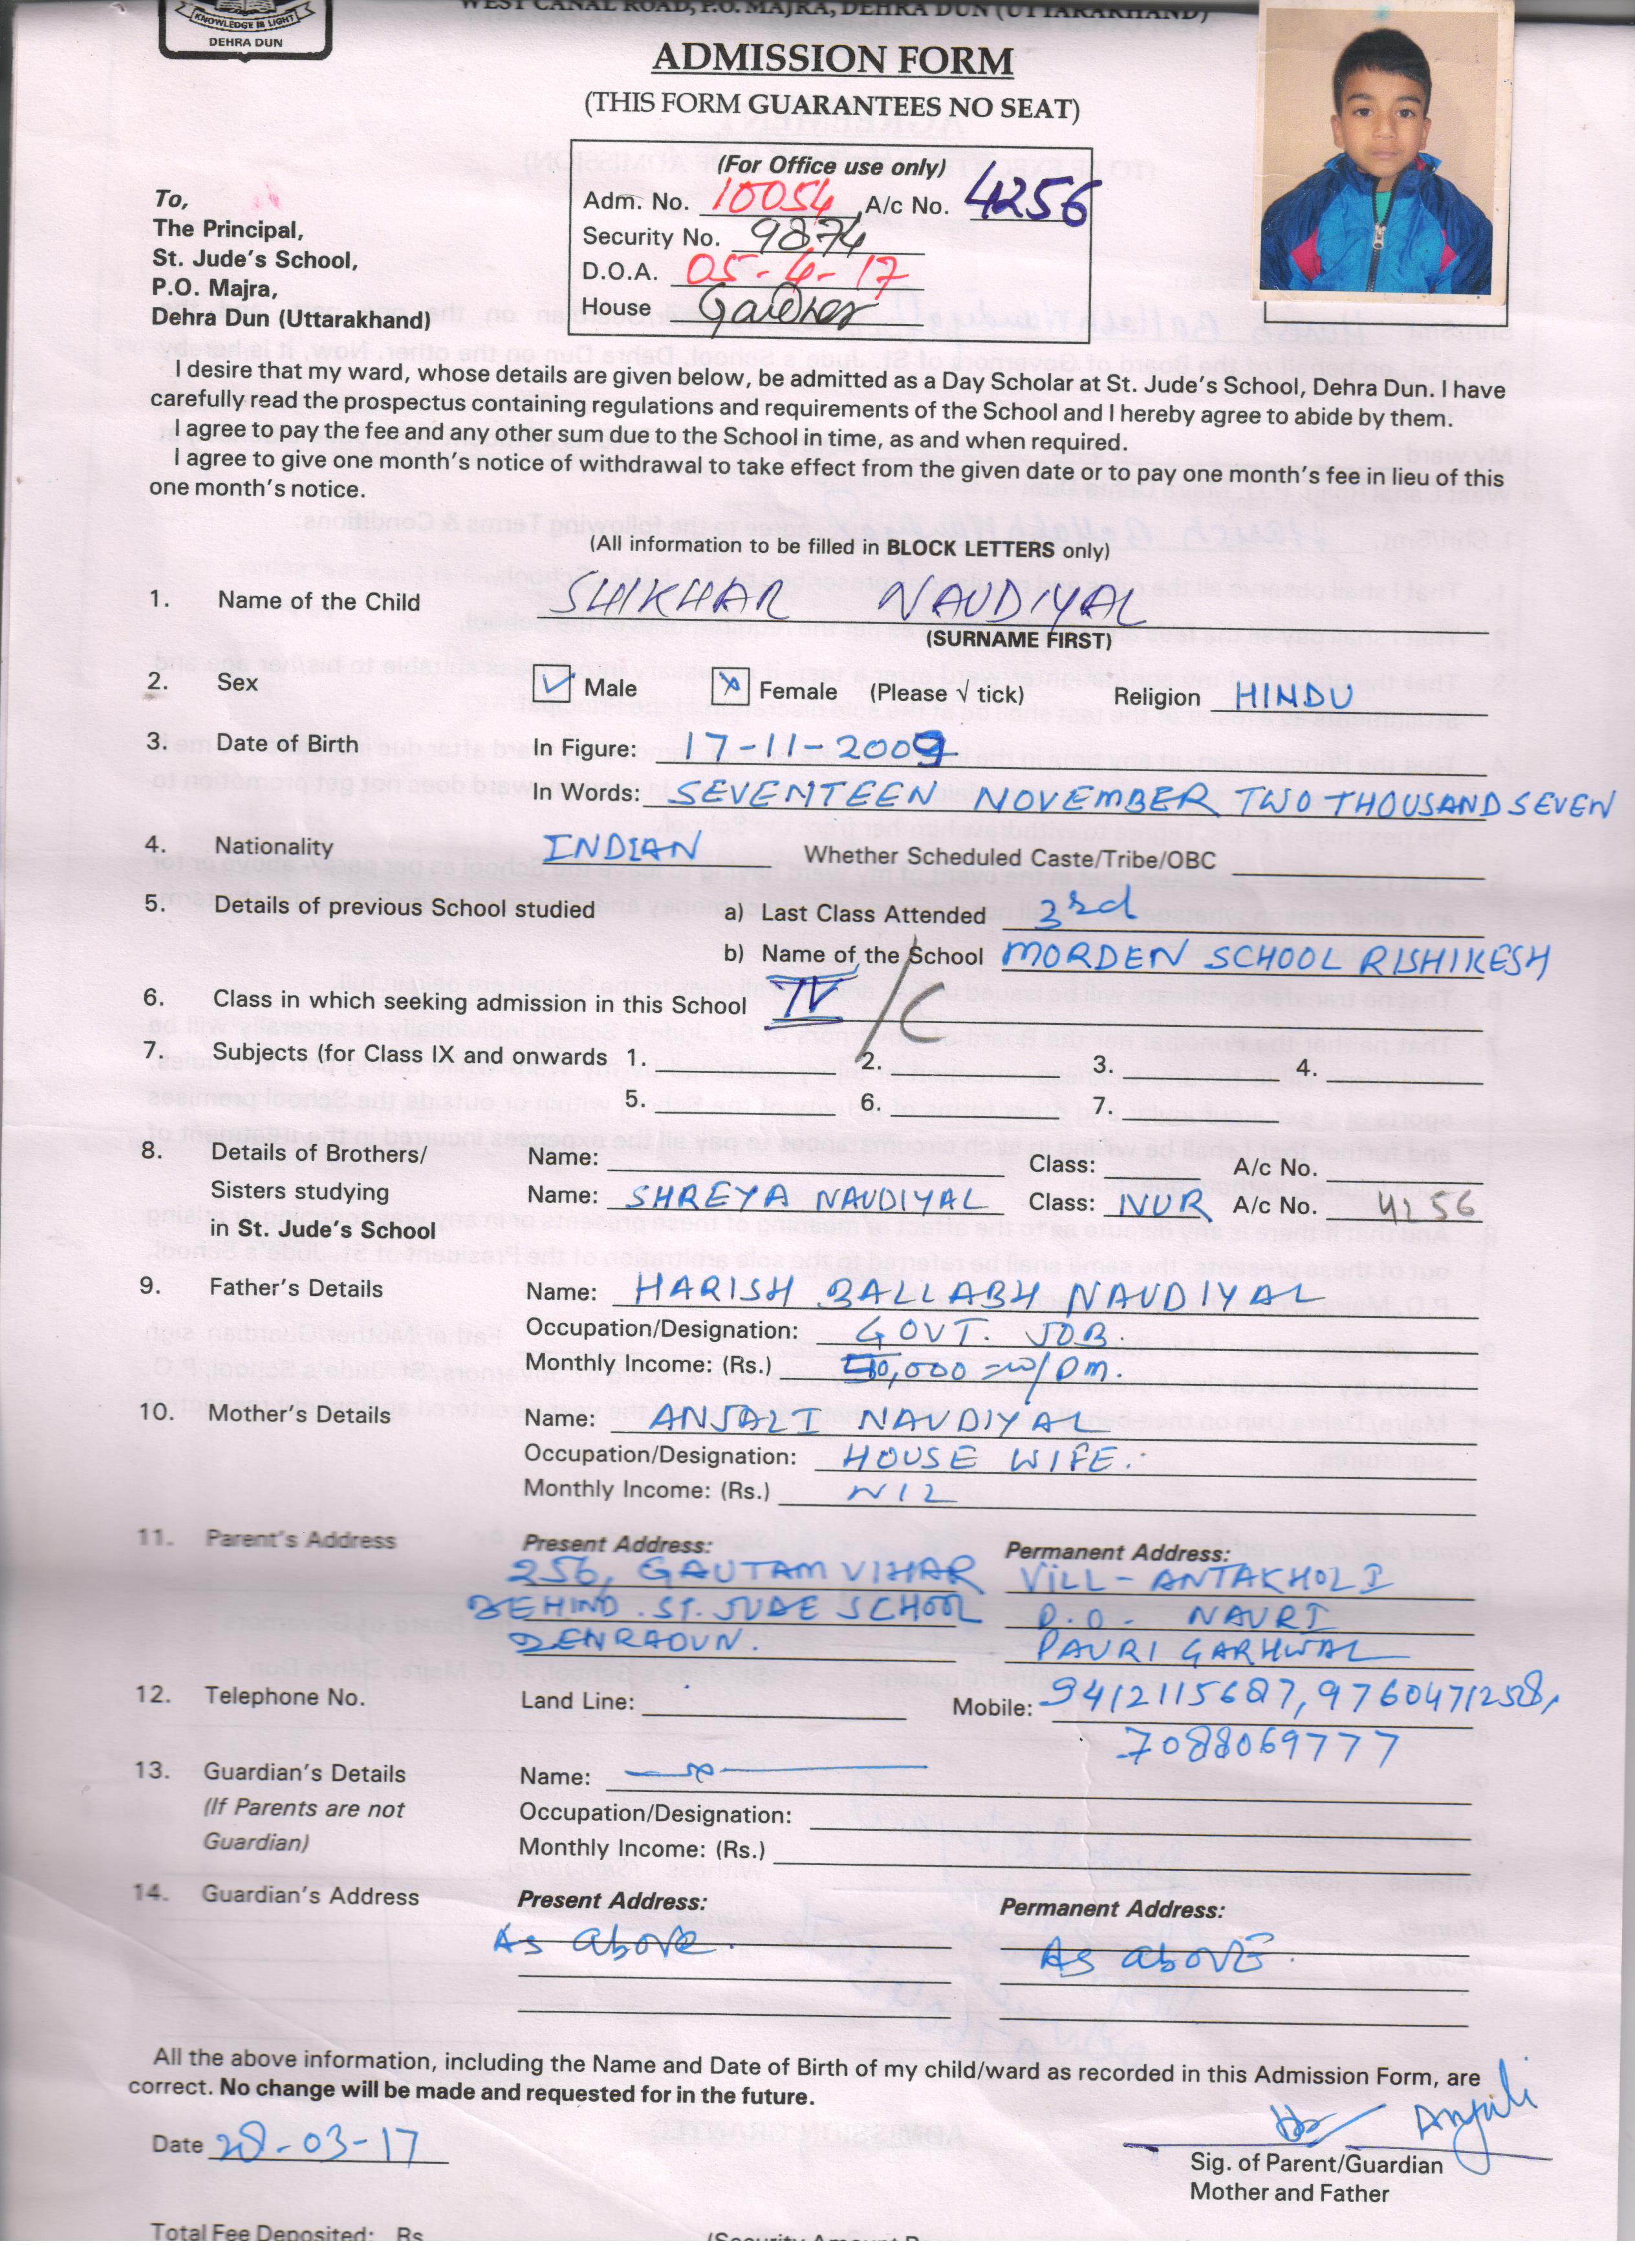 WEST CANAL ROAD, P.O. MAJRA, DEHRA DUN (UTTARAKHAND)
KNOWLEDGE IS LIGHT
DEHRA DUN
ADMISSION FORM
(THIS FORM GUARANTEES NO SEAT)
(For Office use only)
Adm. No. 10054 A/c No. 4256
Security No. 9874
D.O.A. 05-4-17
House
To,
The Principal,
St. Jude's School,
P.O. Majra,
Dehra Dun (Uttarakhand)
I desire that my ward, whose details are given below, be admitted as a Day Scholar at St. Jude's School, Dehra Dun. I have
carefully read the prospectus containing regulations and requirements of the School and I hereby agree to abide by them.
I agree to pay the fee and any other sum due to the School in time, as and when required.
I agree to give one month's notice of withdrawal to take effect from the given date or to pay one month's fee in lieu of this
one month's notice.
(All information to be filled in BLOCK LETTERS only)
1. Name of the Child SHIKHAR NAUDIYAL
(SURNAME FIRST)
2. Sex Male Female (Please √ tick) Religion HINDU
3. Date of Birth In Figure: 17-11-2009
In Words: SEVENTEEN NOVEMBER TWO THOUSAND SEVEN
4. Nationality INDIAN Whether Scheduled Caste/Tribe/OBC
5. Details of previous School studied a) Last Class Attended 3rd
b) Name of the School MORDEN SCHOOL RISHIKESH
6. Class in which seeking admission in this School IV/C
7. Subjects (for Class IX and onwards 1. 2. 3. 4.
5. 6. 7.
8. Details of Brothers/ Name: Class: A/c No.
Sisters studying Name: SHREYA NAUDIYAL Class: NUR A/c No. 4256
in St. Jude's School
9. Father's Details Name: HARISH BALLABH NAUDIYAL
Occupation/Designation: GOVT. JOB.
Monthly Income: (Rs.)
10. Mother's Details Name: ANJALI NAUDIYAL
Occupation/Designation: HOUSE WIFE.
Monthly Income: (Rs.) NIL
11. Parent's Address Present Address: Permanent Address:
256, GAUTAM VIHAR VILL - ANTAKHOLI
BEHIND. ST. JUDE SCHOOL P.O. NAURI
DEHRADUN. PAURI GARHWAL
12. Telephone No. Land Line: Mobile: 9412115687, 9760471258,
7088069777
13. Guardian's Details Name:
(If Parents are not Occupation/Designation:
Guardian) Monthly Income: (Rs.)
14. Guardian's Address Present Address: Permanent Address:
As above. As above.
All the above information, including the Name and Date of Birth of my child/ward as recorded in this Admission Form, are
correct. No change will be made and requested for in the future.
Anjali
Date 28-03-17
Sig. of Parent/Guardian
Mother and Father
Total Fee Deposited: Rs